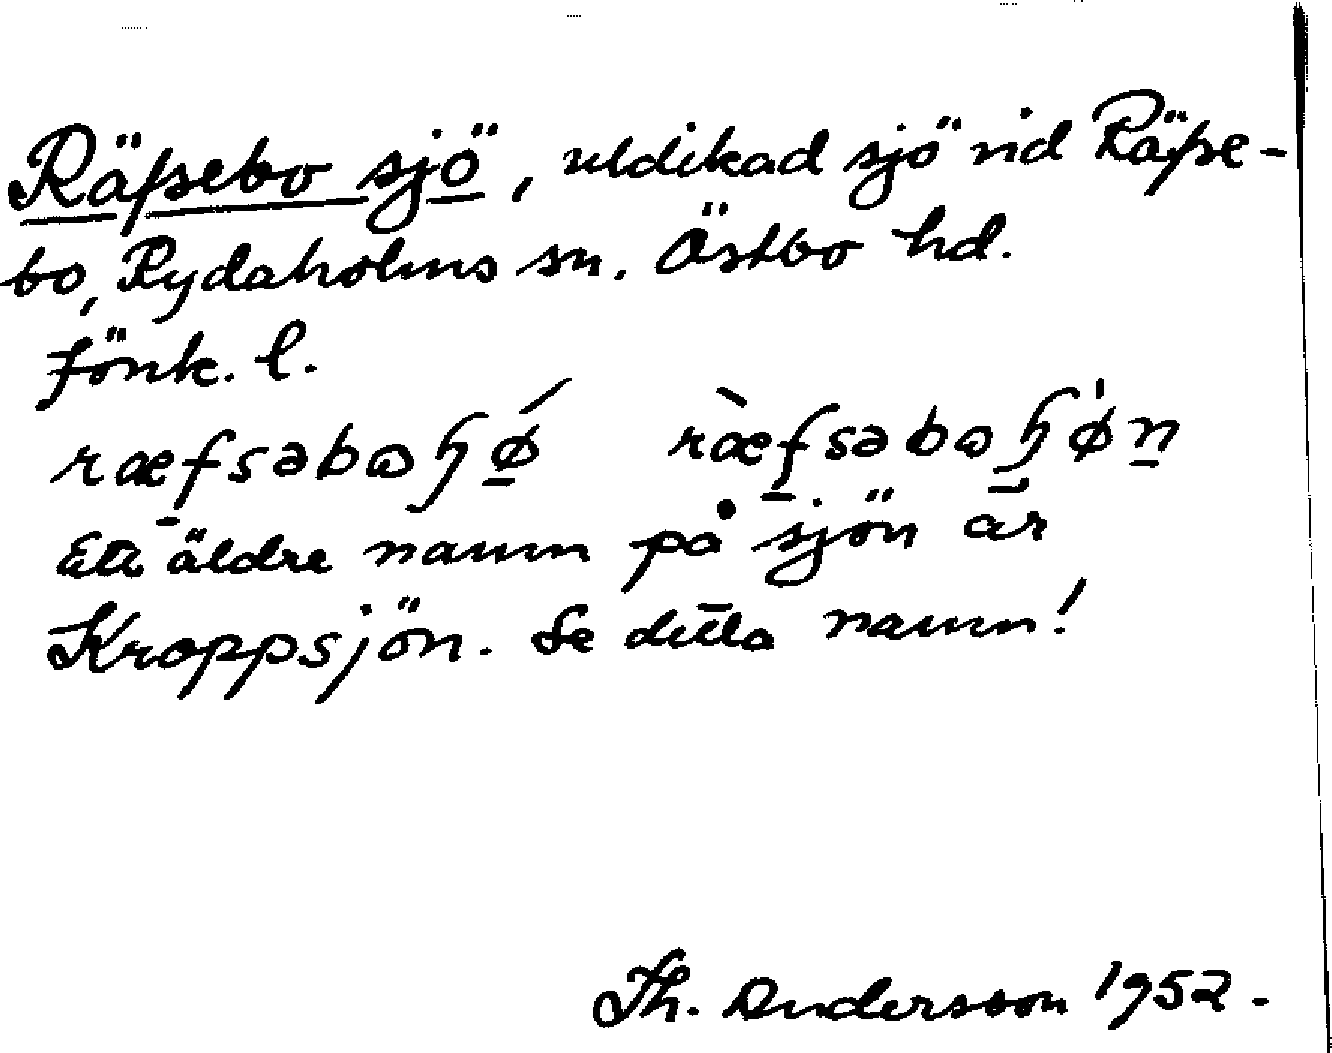 Räpsebo sjö, utdikad sjö vid Räpse-
bo, Rydaholms sn. Östbo hd.
Jönk. l.
ræfsəbɷɧǿ ræ̀fsəbɷɧø̍n
Ett äldre namn på sjön är
Kroppsjön. Se detta namn!
Th. Andersson 1952.